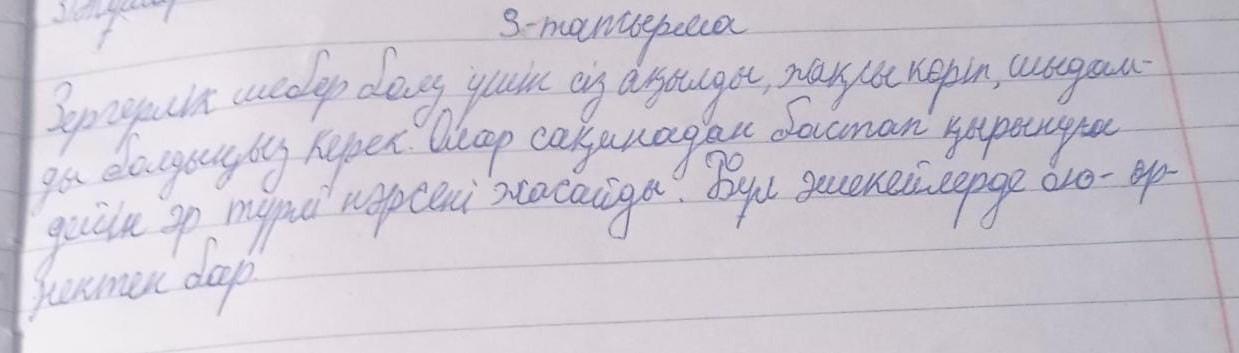 3-тапсырма
Зергерлік шебер болу үшін сіз ақылды, жақсы көріп, шыдам-
ды болдыңыз керек. Олар сақинадан бастап қырынуға
дейін әр түрлі нәрсені жасайды. Бұл әшекейлерде ою-өр-
нектен бар.